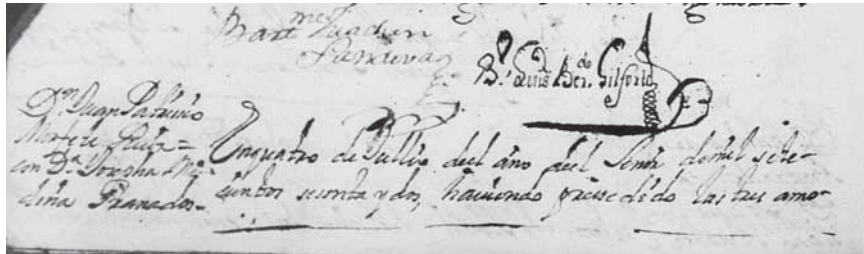 Bart.me Juachin
B.r Luis Ber.do Gilforte
D.n Juan Patricio
con D.a Josepha Me-
dina Granados-
En quatro de Jullio del año del Señor de mil sete-
cientos sesenta y dos, haviendo presedido las tres amo-